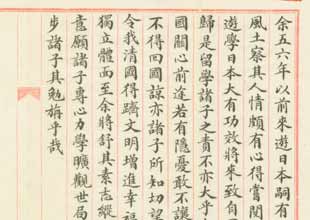 余五六年以前來遊日本嗣有
風土察其人情頗有心得嘗聞
遊學日本大有功效將來致自
歸是留學諸子之責不亦大乎
國關心前途若有隱憂敢不讓
不得回國諒亦諸子所知切望
令我清國得躋文明增進幸福
獨立體面至余將舒其素志縱
意願諸子專心力學曠觀世局
步諸子其勉旃乎哉